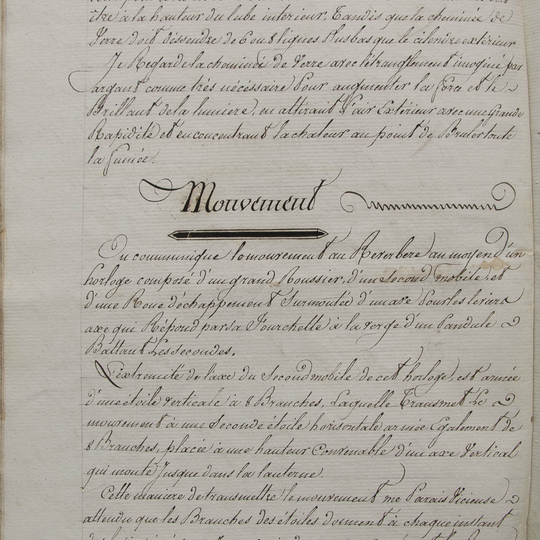 être à la hauteur du tube interieur. Tandis que la cheminée de
Verre doit dessendre de 6 ou 8 lignes plus bas que le cilindre extérieur
Je Regarde la cheminée de Verre avec l'étranglement imaginé par
argant comme très nécessaire Pour augmenter la force et le
Brillant de la lumiere, en attirant l'air Extérieur avec une Grande
Rapidité et en concentrant la chaleur au point de Bruler toute
la fumée.
Mouvement
On communique le mouvement au Reverbere au moyen D'un
horloge composé d'un grand Roussier, d'un second mobile, et
d'une Roue d'échappement Surmontée d'un axe Pour les
axe qui Répond par sa Fourchette à la verge d'un Pandule
Battant Les secondes.
L'extremité de l'axe du Second mobile de cet horloge, est armée
d'une étoile verticale à 8 Branches, Laquelle Transmet Le
mouvement à une Seconde étoile horisontale armée Egalement de
8 Branches, placée à une hauteur Convenable d'un axe Vertical
qui monte Jusque dans la lanterne.
Cette maniere de transmettre le mouvement me Parait Vicieuse
attendu que les Branches des étoiles donnent à chaque instant